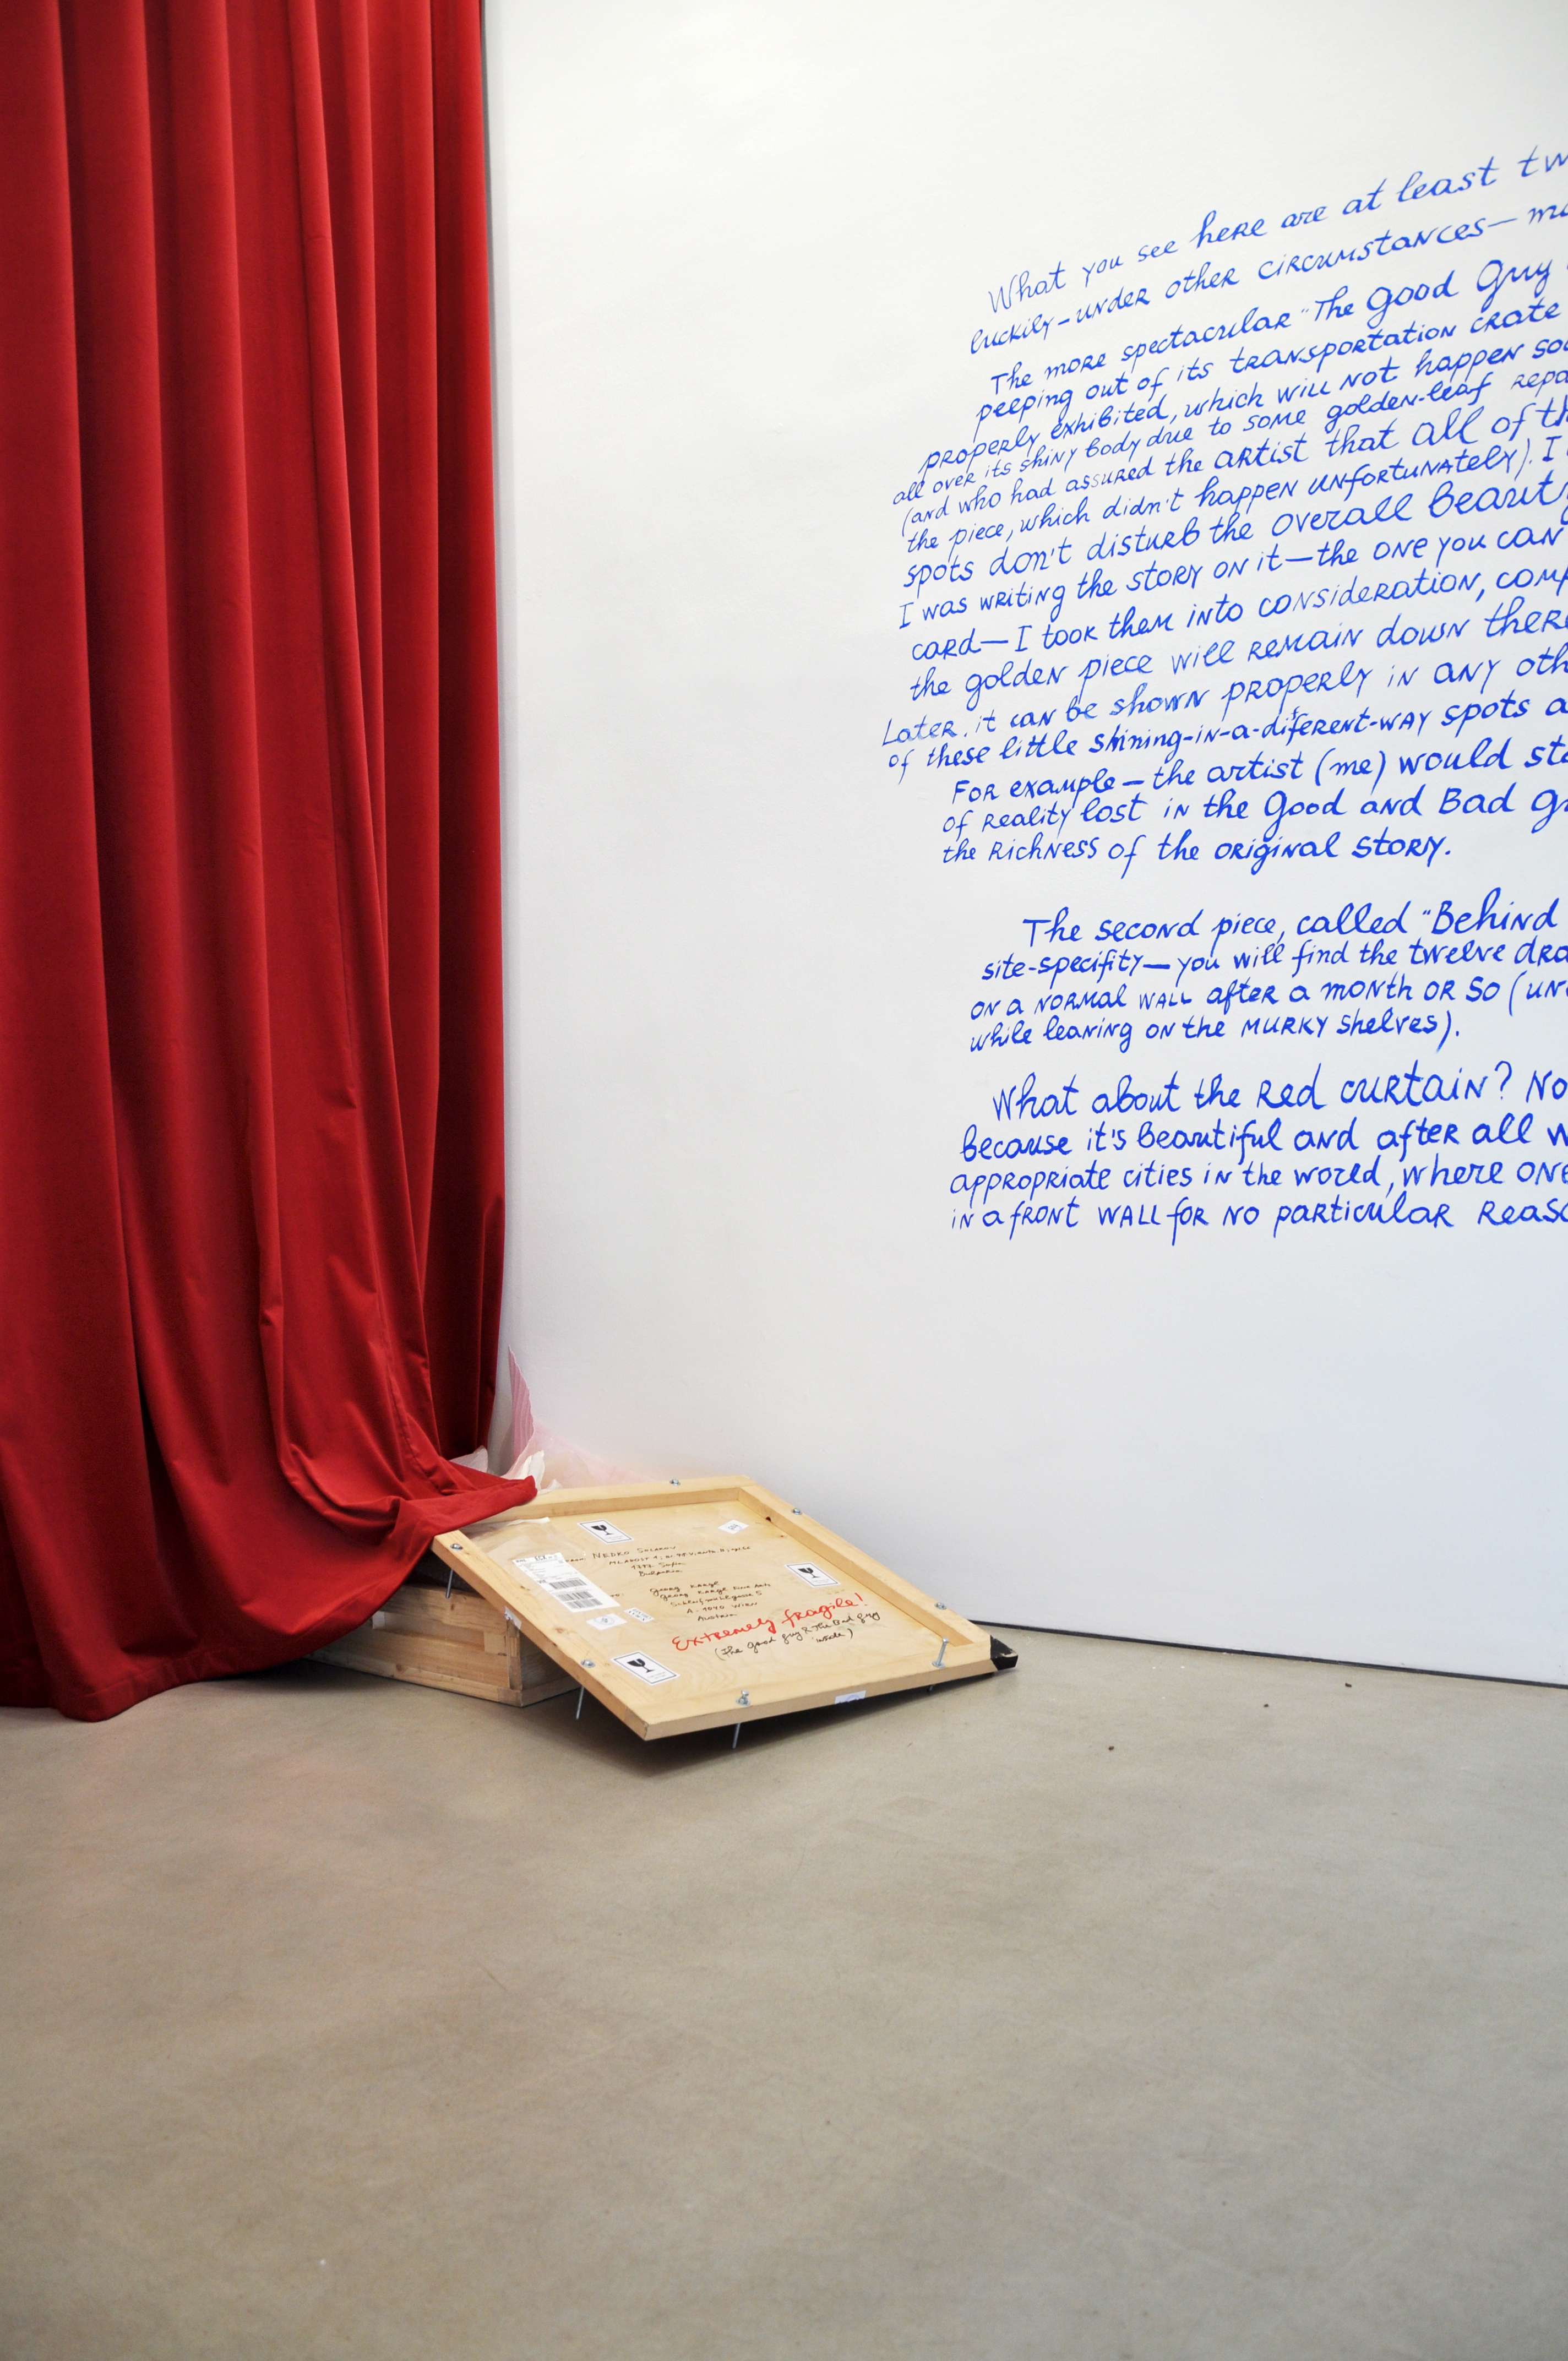 What you see here are at least tw
luckily–under other circumstances— ma
The more spectacular "The Good Guy
peeping out of its transportation crate
properly exhibited, which will not happen soo
all over its shiny body due to some golden-leaf repa
(and who had assured the artist that all of th
the piece, which didn't happen unfortunately). I
spots don't disturb the overall beauty
I was writing the story on it—the one you can
card—I took them into consideration, comp
the golden piece will remain down there
Later, it can be shown properly in any oth
of these little shining-in-a-diferent-way spots a
For example—the artist (me) would sta
of reality lost in the Good and Bad g
the richness of the original story.
The second piece, called "Behind
site-specifity—you will find the twelve dra
on a normal wall after a month or so (un
while leaning on the murky shelves).
What about the red curtain? No
because it's beautiful and after all w
appropriate cities in the world, where one
in a front wall for no particular reaso
1272 Sofia
Bulgaria
Georg Kargl
Georg Kargl Fine Arts
Schleifmühlgasse 5
A-1040 Wien
Austria
Extremely fragile!
(The Good guy & The Bad guy
inside)